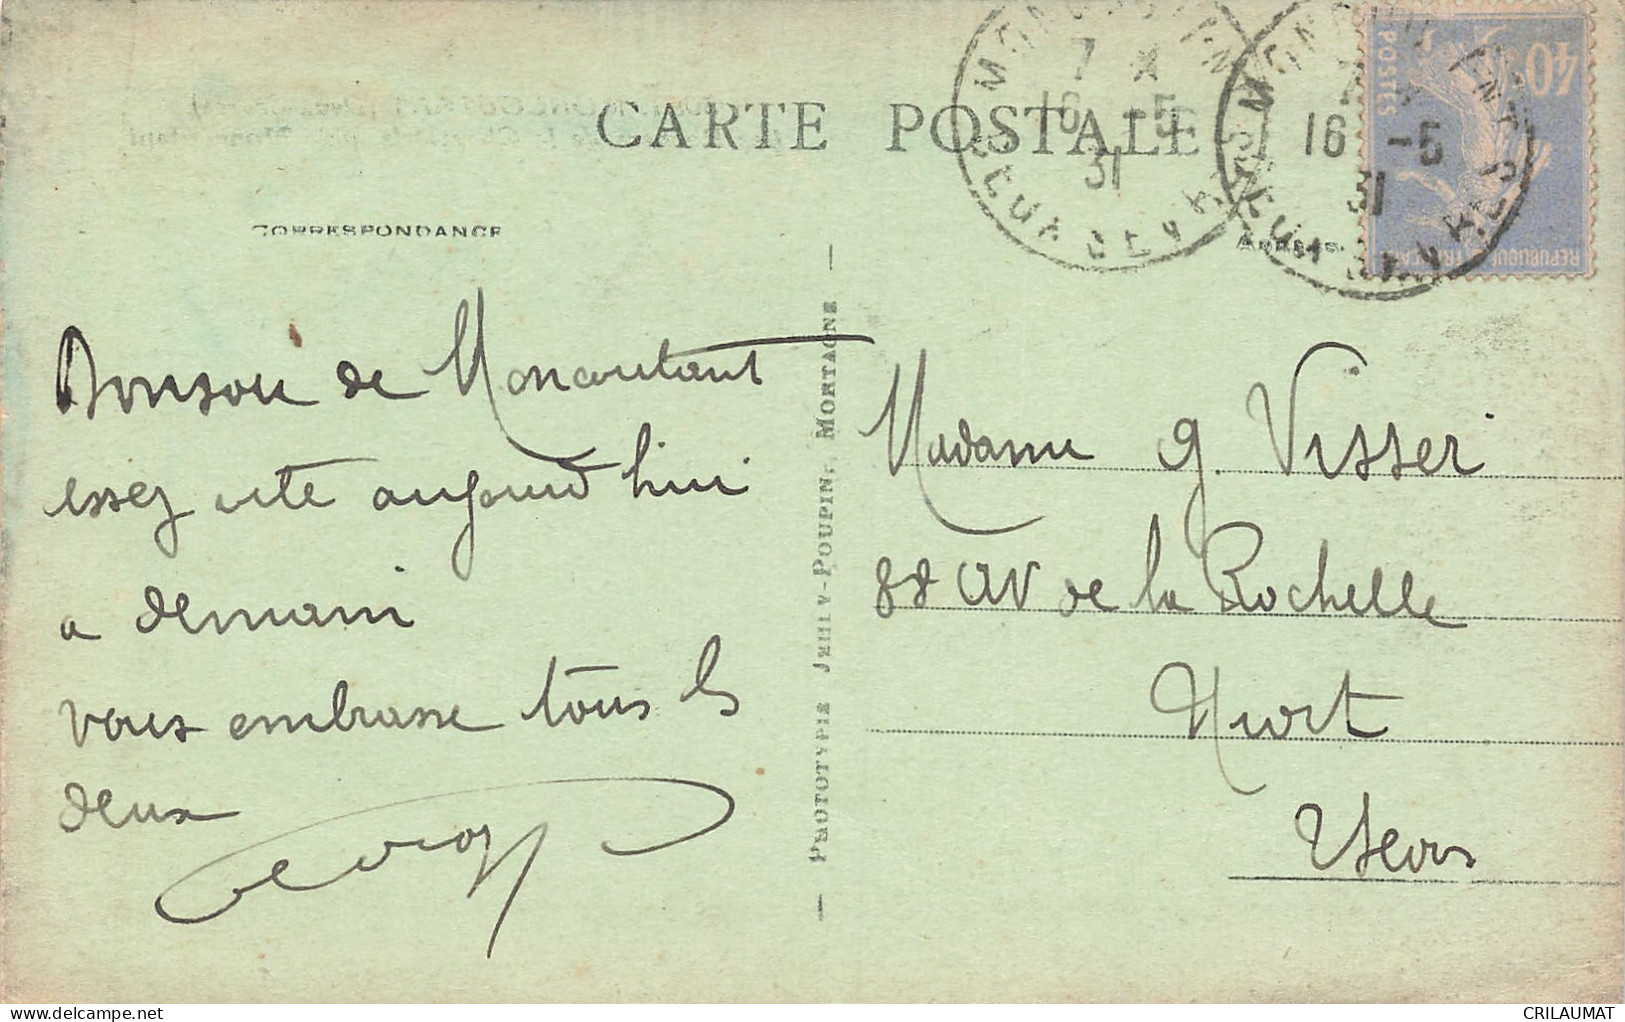 CARTE POSTALE
CORRESPONDANCE
40
POSTES
REPUBLIQUE FRANÇAISE
16 -5
31
16 -5
31
DEUX SEVRES
Bonsoir de Moncoutant
essez vite aujourd'hui
a demain
vous embrasse tous les
deux
— PHOTOTYPIE JEHLY-POUPIN, MORTAGNE —
Madame G. Visser
88 av de la Rochelle
Niort
2 Sevres
www.delcampe.net
CRILAUMAT